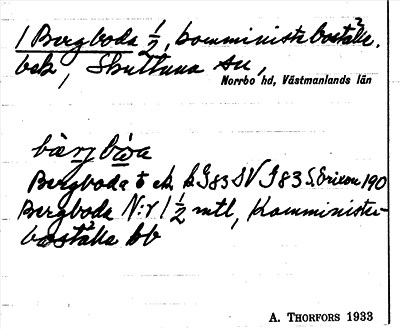 1 Bergboda 1/2, komministerboställe.
bek, Skultuna sn,
Norrbo hd, Västmanlands län
bàrj bὼa
Bergboda t ek. bl G83 SV J83 S. Erixon 190
Bergboda N:r 1 1/2 mtl, Komminister-
boställe bb
A. THORFORS 1933